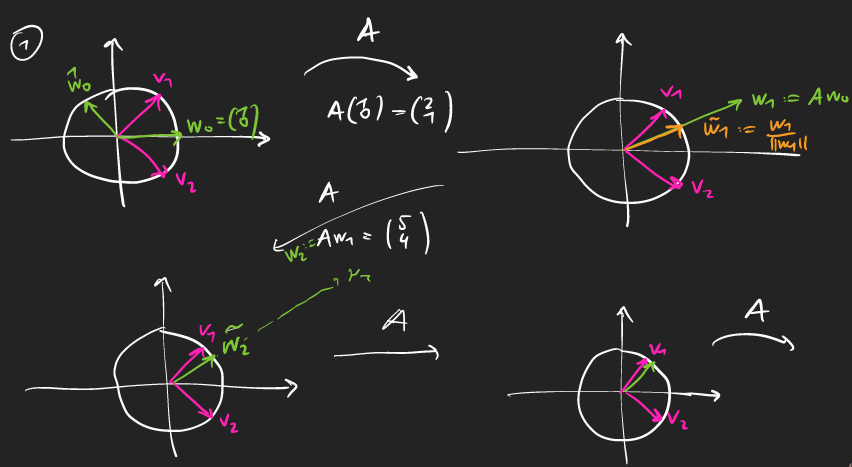 ①
ŵ₀
v₁
w₀ = (1 0)
v₂
A
A(1 0) = (2 1)
v₁
w₁ := Aw₀
w̃₁ := w₁/||w₁||
v₂
A
w₂ := Aw₁ = (5 4)
v₁
w̃₂
v₂
A
v₁
v₂
A